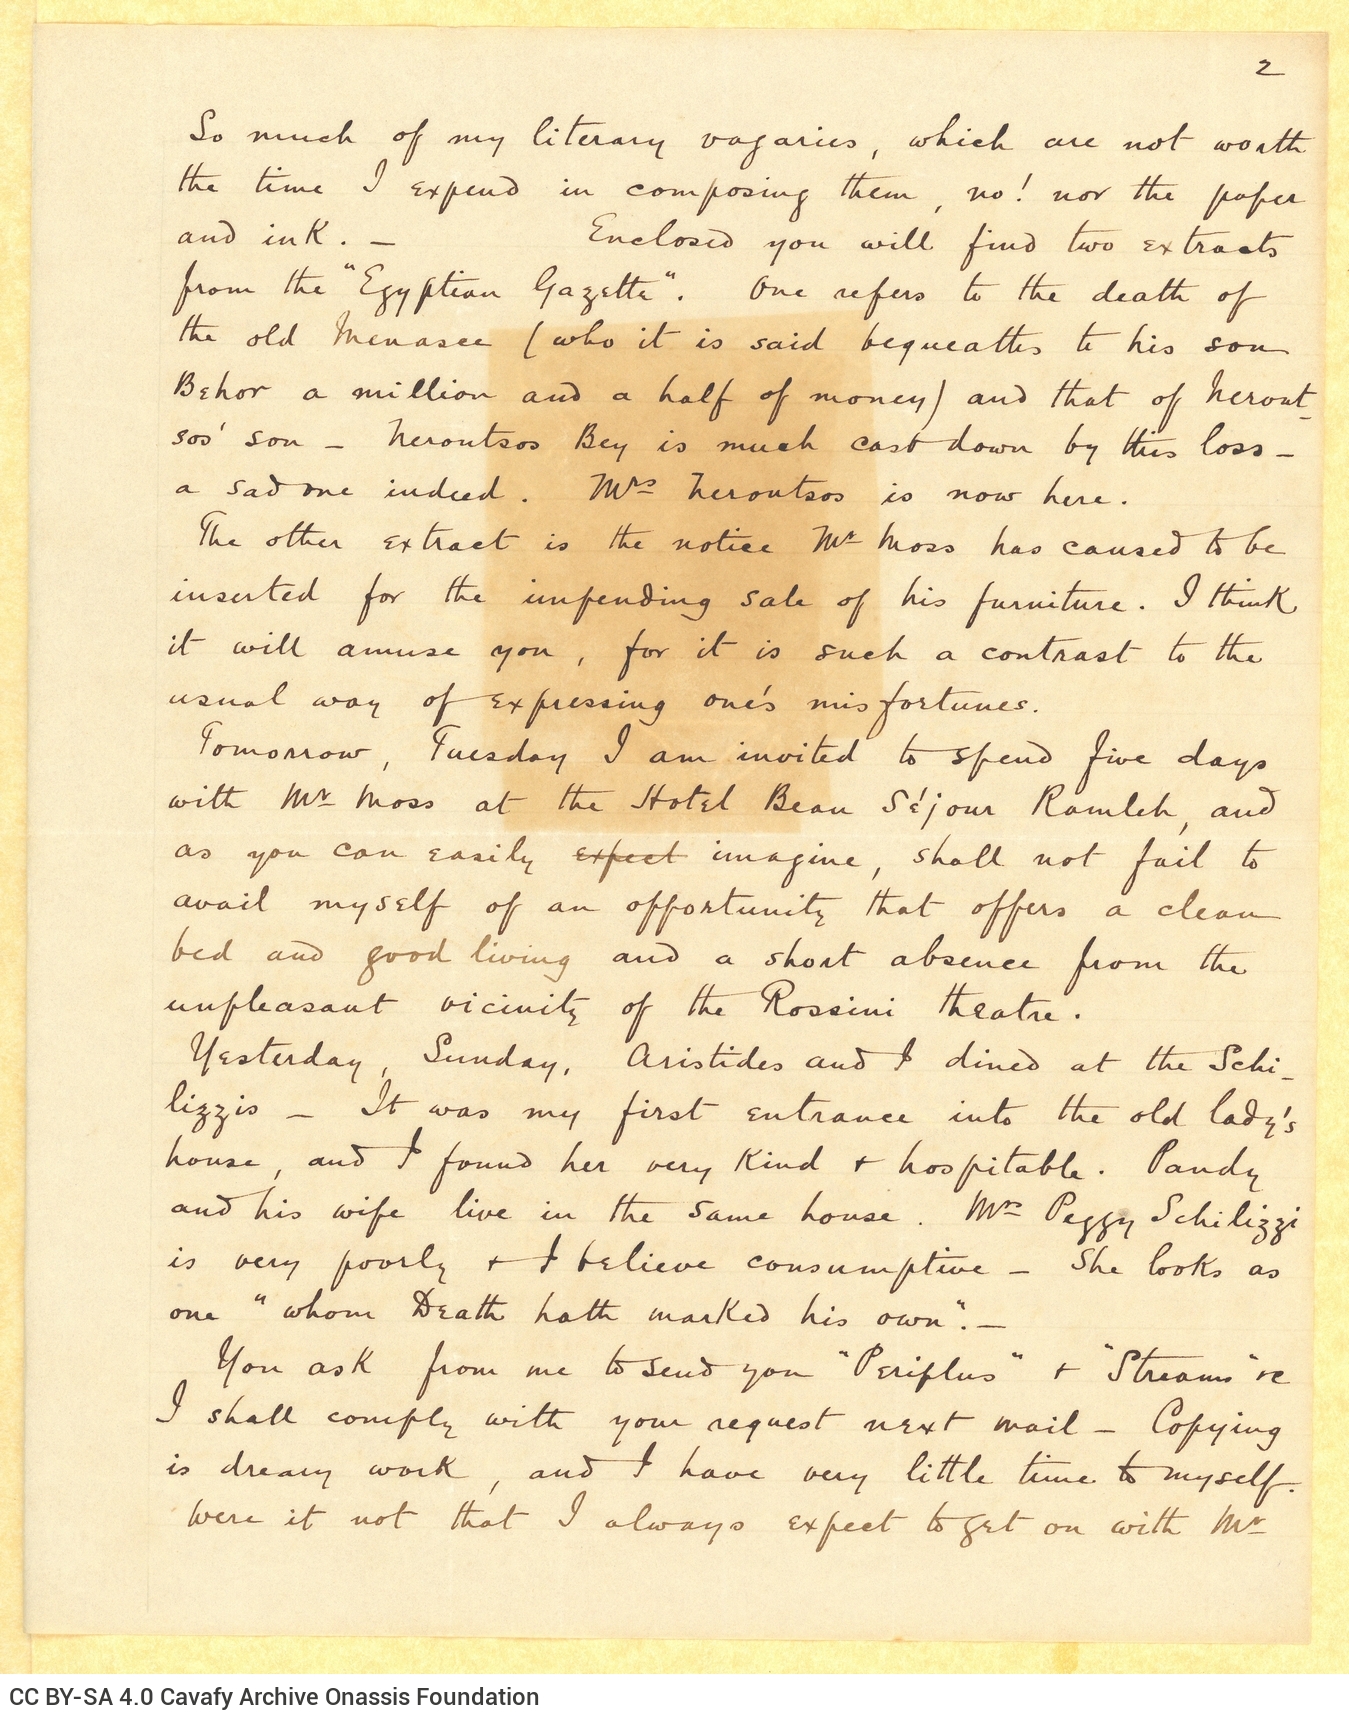 2
So much of my literary vagaries, which are not worth
the time I expend in composing them, no! nor the paper
and ink. – Enclosed you will find two extracts
from the "Egyptian Gazette". One refers to the death of
the old Menasce (who it is said bequeathes to his son
Behor a million and a half of money) and that of Nerout-
sos' son – Neroutsos Bey is much cast down by this loss –
a sad one indeed. Mrs Neroutsos is now here.
The other extract is the notice Mr Moss has caused to be
inserted for the impending sale of his furniture. I think
it will amuse you, for it is such a contrast to the
usual way of expressing one's misfortunes.
Tomorrow, Tuesday I am invited to spend five days
with Mr Moss at the Hotel Beau Séjour Ramleh, and
as you can easily expect imagine, shall not fail to
avail myself of an opportunity that offers a clean
bed and good living and a short absence from the
unpleasant vicinity of the Rossini theatre.
Yesterday, Sunday, Aristides and I dined at the Schi-
lizzis – It was my first entrance into the old lady's
house, and I found her very kind + hospitable. Pandy
and his wife live in the same house. Mrs Peggy Schilizzi
is very poorly + I believe consumptive – She looks as
one "whom Death hath marked his own". –
You ask from me to send you "Periplus" + "Streams" re
I shall comply with your request next mail – Copying
is dreary work, and I have very little time to myself.
Were it not that I always expect to get on with Mr
CC BY-SA 4.0 Cavafy Archive Onassis Foundation